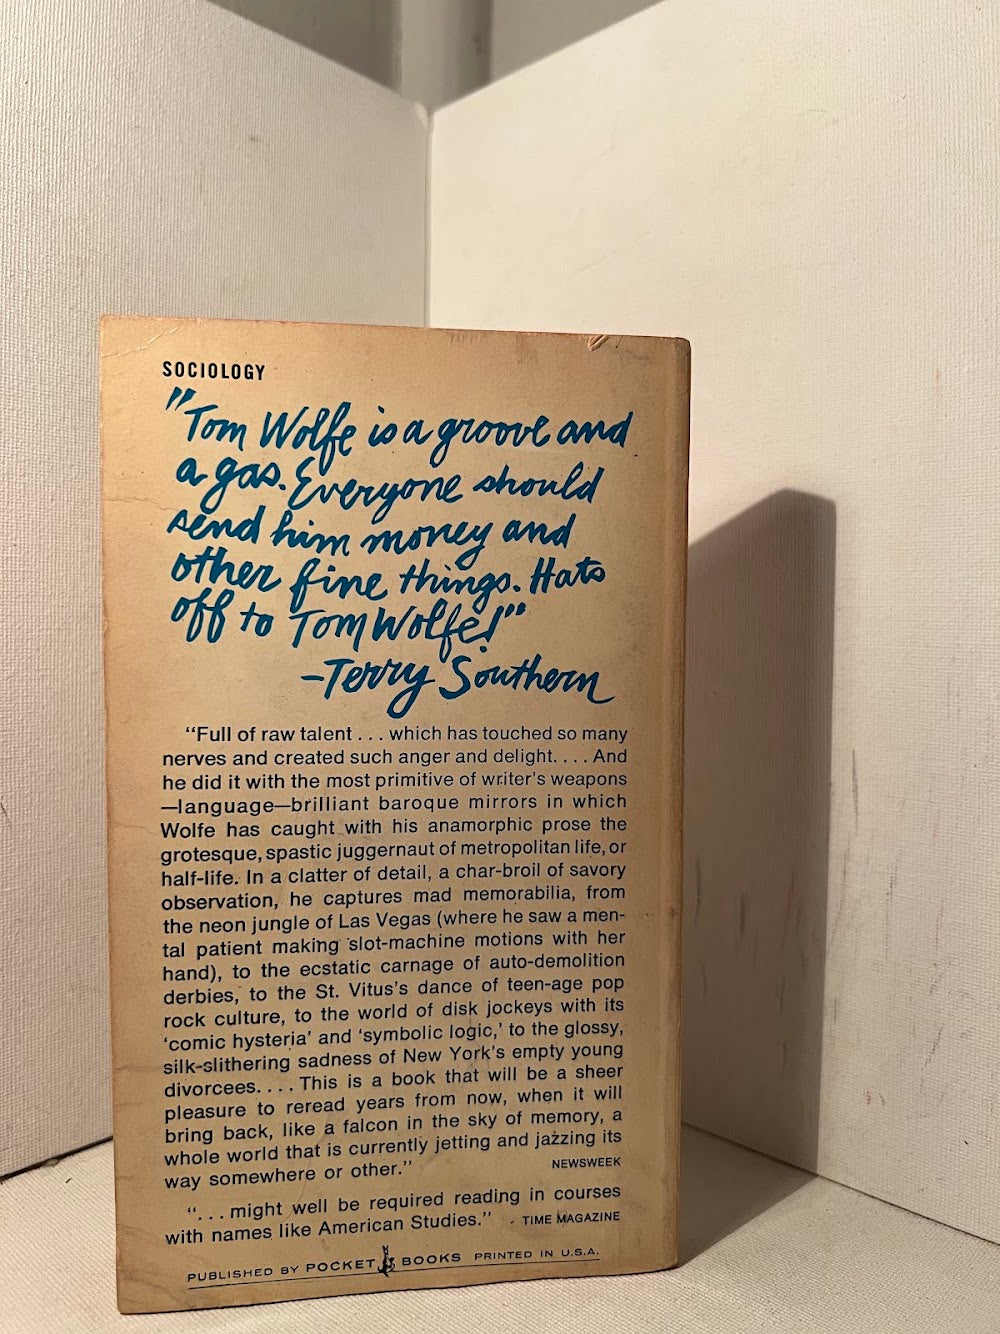 SOCIOLOGY
"Tom Wolfe is a groove and
a gas. Everyone should
send him money and
other fine things. Hats
off to Tom Wolfe!"
–Terry Southern
"Full of raw talent . . . which has touched so many
nerves and created such anger and delight. . . . And
he did it with the most primitive of writer's weapons
—language—brilliant baroque mirrors in which
Wolfe has caught with his anamorphic prose the
grotesque, spastic juggernaut of metropolitan life, or
half-life. In a clatter of detail, a char-broil of savory
observation, he captures mad memorabilia, from
the neon jungle of Las Vegas (where he saw a men-
tal patient making slot-machine motions with her
hand), to the ecstatic carnage of auto-demolition
derbies, to the St. Vitus's dance of teen-age pop
rock culture, to the world of disk jockeys with its
'comic hysteria' and 'symbolic logic,' to the glossy,
silk-slithering sadness of New York's empty young
divorcees. . . . This is a book that will be a sheer
pleasure to reread years from now, when it will
bring back, like a falcon in the sky of memory, a
whole world that is currently jetting and jazzing its
way somewhere or other." NEWSWEEK
". . . might well be required reading in courses
with names like American Studies." TIME MAGAZINE
PUBLISHED BY POCKET BOOKS PRINTED IN U.S.A.